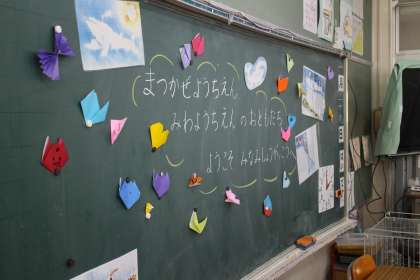 まつかぜようちえん
みわようちえん の おともだち
ようこそ みなみしょうがっこうへ